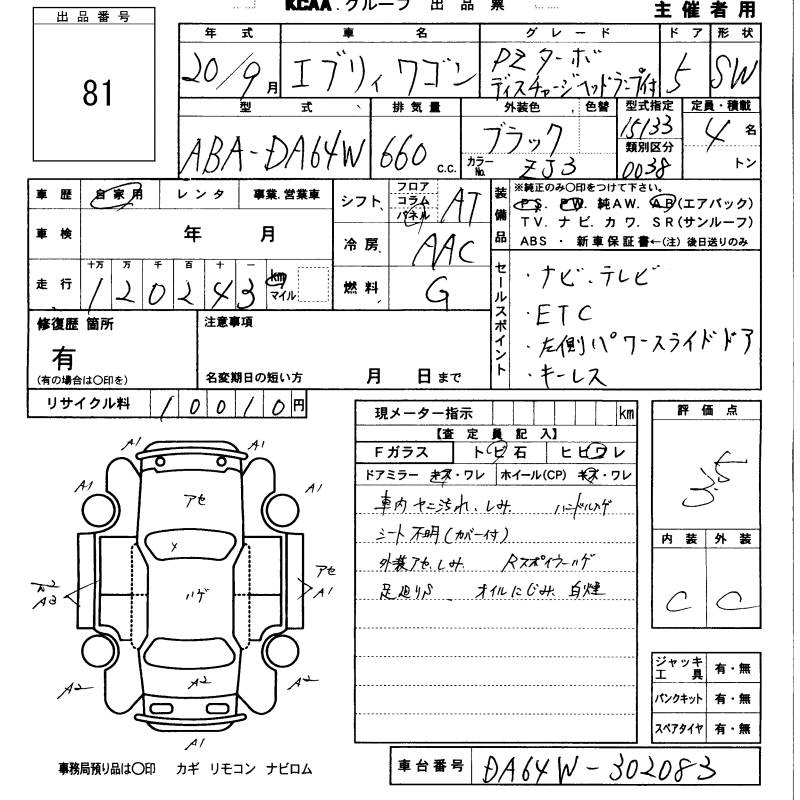 KCAA グループ 出品票
主催者用
出品番号
81
年式 車名 グレード ドア 形状
20/9月 エブリィワゴン PZターボ ディスチャージヘッドランプ付 5 SW
型式 排気量 外装色 色替 型式指定 定員・積載
ABA-DA64W 660 c.c. ブラック カラーNo. ZJ3 15133 類別区分 0038 4名 トン
車歴 自家用 レンタ 事業.営業車
車検 年 月
走行 十万 万 千 百 十 一
120243 km マイル
シフト フロア コラム パネル AT
冷房 AAC
燃料 G
装備品 ※純正のみ〇印をつけて下さい。
PS. PW. 純AW. AB(エアバック)
TV. ナビ. カワ. SR(サンルーフ)
ABS ・ 新車保証書←(注) 後日送りのみ
セールスポイント
・ナビ、テレビ
・ETC
・左側パワースライドドア
・キーレス
修復歴 箇所
有
(有の場合は〇印を)
注意事項
名変期日の短い方 月 日まで
リサイクル料 10010円
現メーター指示 km
【査定員記入】
Fガラス トビ石 ヒビワレ
ドアミラー キズ・ワレ ホイール(CP) キズ・ワレ
車内ヤニ汚れ、しみ ハンドルハゲ
シート不明(カバー付)
外装アセ、しみ Rスポイラーハゲ
足廻りS オイルにじみ 白煙
評価点
3.5
内装 外装
C C
ジャッキ 工具 有・無
パンクキット 有・無
スペアタイヤ 有・無
A1 A1
A1 アセ A1
メ
A3 ハゲ アセ A1
A2 A2 A2
A1
事務局預り品は〇印 カギ リモコン ナビロム
車台番号 DA64W-302083